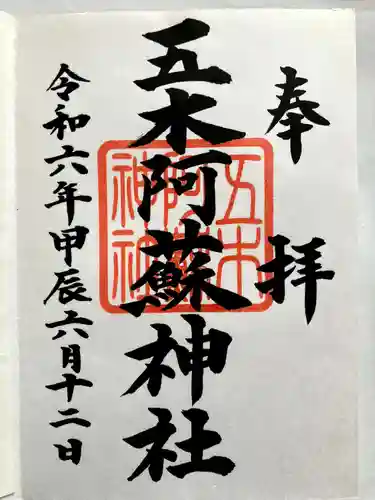 奉拝
五木阿蘇神社
令和六年甲辰六月十二日
五木
阿蘇
神社